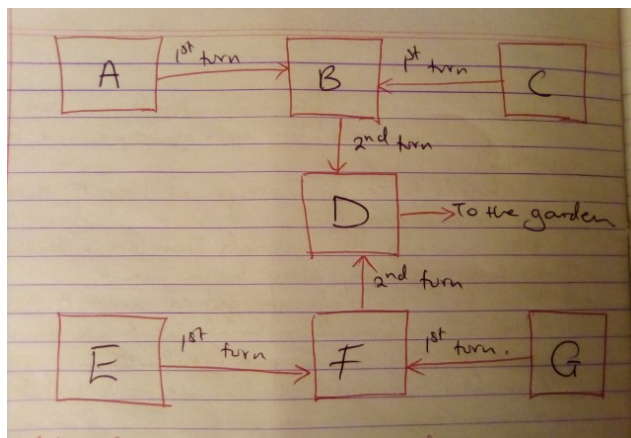 1st turn 1st turn
A B C
2nd turn
D To the garden
2nd turn
1st turn 1st turn.
E F G